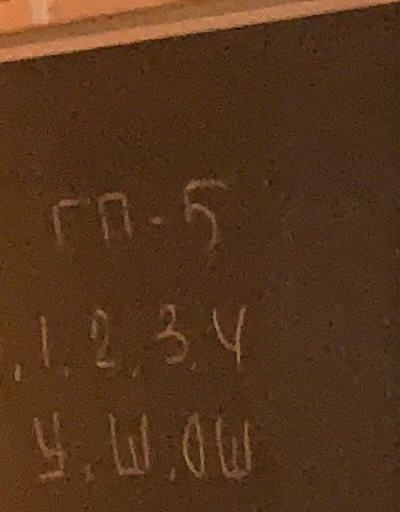 ГП-5
,1,2,3,4
У,Ш,ОШ